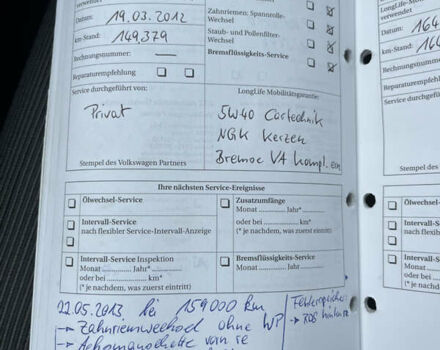 verwendet
Zahnriemen: Spannrolle-
Wechsel
LongLife-Mo
verwendet
Datum: 19.03.2012
Staub- und Pollenfilter-
Wechsel
Datum: 164
km-Stand: 149.379
Bremsflüssigkeits-Service
km-Stand: 16
Rechnungsnummer:
Rechnungsnumm
Reparaturempfehlung
Reparaturempf
Service durchgeführt von:
LongLife Mobilitätsgarantie:
Service durchgef
Privat
5W40 Cartechnik
NGK Kerzen
Bremse VA kompl. ern.
Stempel des Volkswagen Partners
Stempel des Volk
Ihre nächsten Service-Ereignisse
Ölwechsel-Service
Zusatzumfänge
Monat Jahr*
oder bei km*
(* je nachdem, was zuerst eintritt)
Ölwechsel-
Intervall-Service
nach flexibler Service-Intervall-Anzeige
Intervall-Se
nach flexibl
Intervall-Service Inspektion
Monat Jahr*
oder bei km*
(* je nachdem, was zuerst eintritt)
Bremsflüssigkeits-Service
Monat Jahr*
Intervall-Se
Monat
oder bei
(* je nachd
22.05.2013, bei 159000 km
→ Zahnriemenwechsel ohne WP
→ Achsmanschette vorn re
Fehlerspeicher